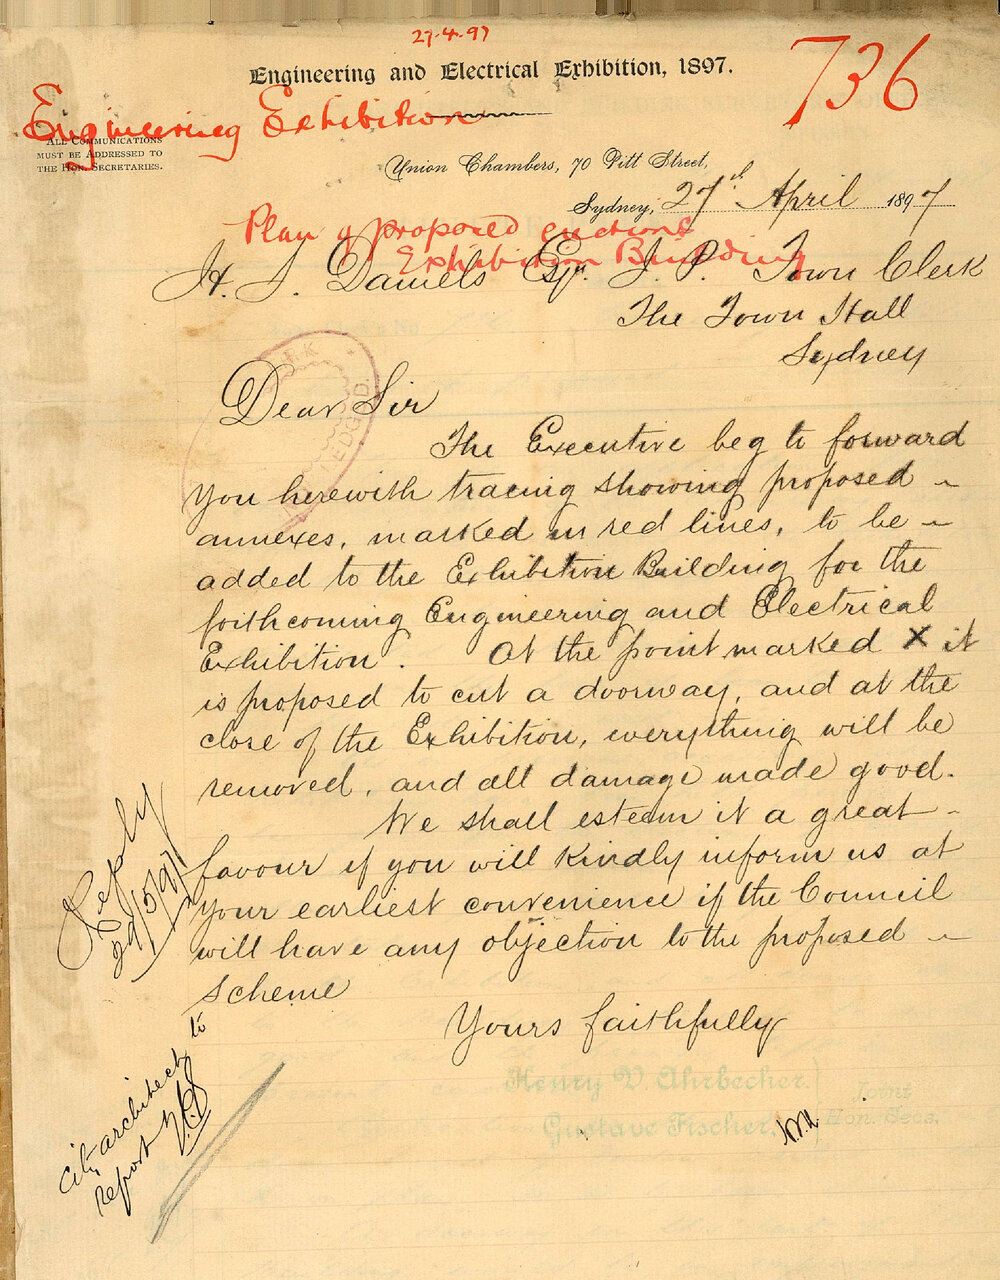 27·4·97
Engineering and Electrical Exhibition, 1897.
736
Engineering Exhibition
ALL COMMUNICATIONS
MUST BE ADDRESSED TO
THE HON. SECRETARIES.
Union Chambers, 70 Pitt Street,
Sydney, 27th April 1897
Plan of proposed erections
Exhibition Building
H. J. Daniels Esqr. J. P. Town Clerk
The Town Hall
Sydney
Dear Sir
The Executive beg to forward
you herewith tracing showing proposed
annexes, marked in red lines, to be
added to the Exhibition Building for the
forthcoming Engineering and Electrical
Exhibition. At the point marked X it
is proposed to cut a doorway, and at the
close of the Exhibition, everything will be
removed, and all damage made good.
We shall esteem it a great
favour if you will kindly inform us at
your earliest convenience if the Council
will have any objection to the proposed
scheme
Yours faithfully
Henry V. Ahrbecker. } Joint
Gustave Fischer. } Hon. Secs.
Reply
29/5/97
City architect to
report